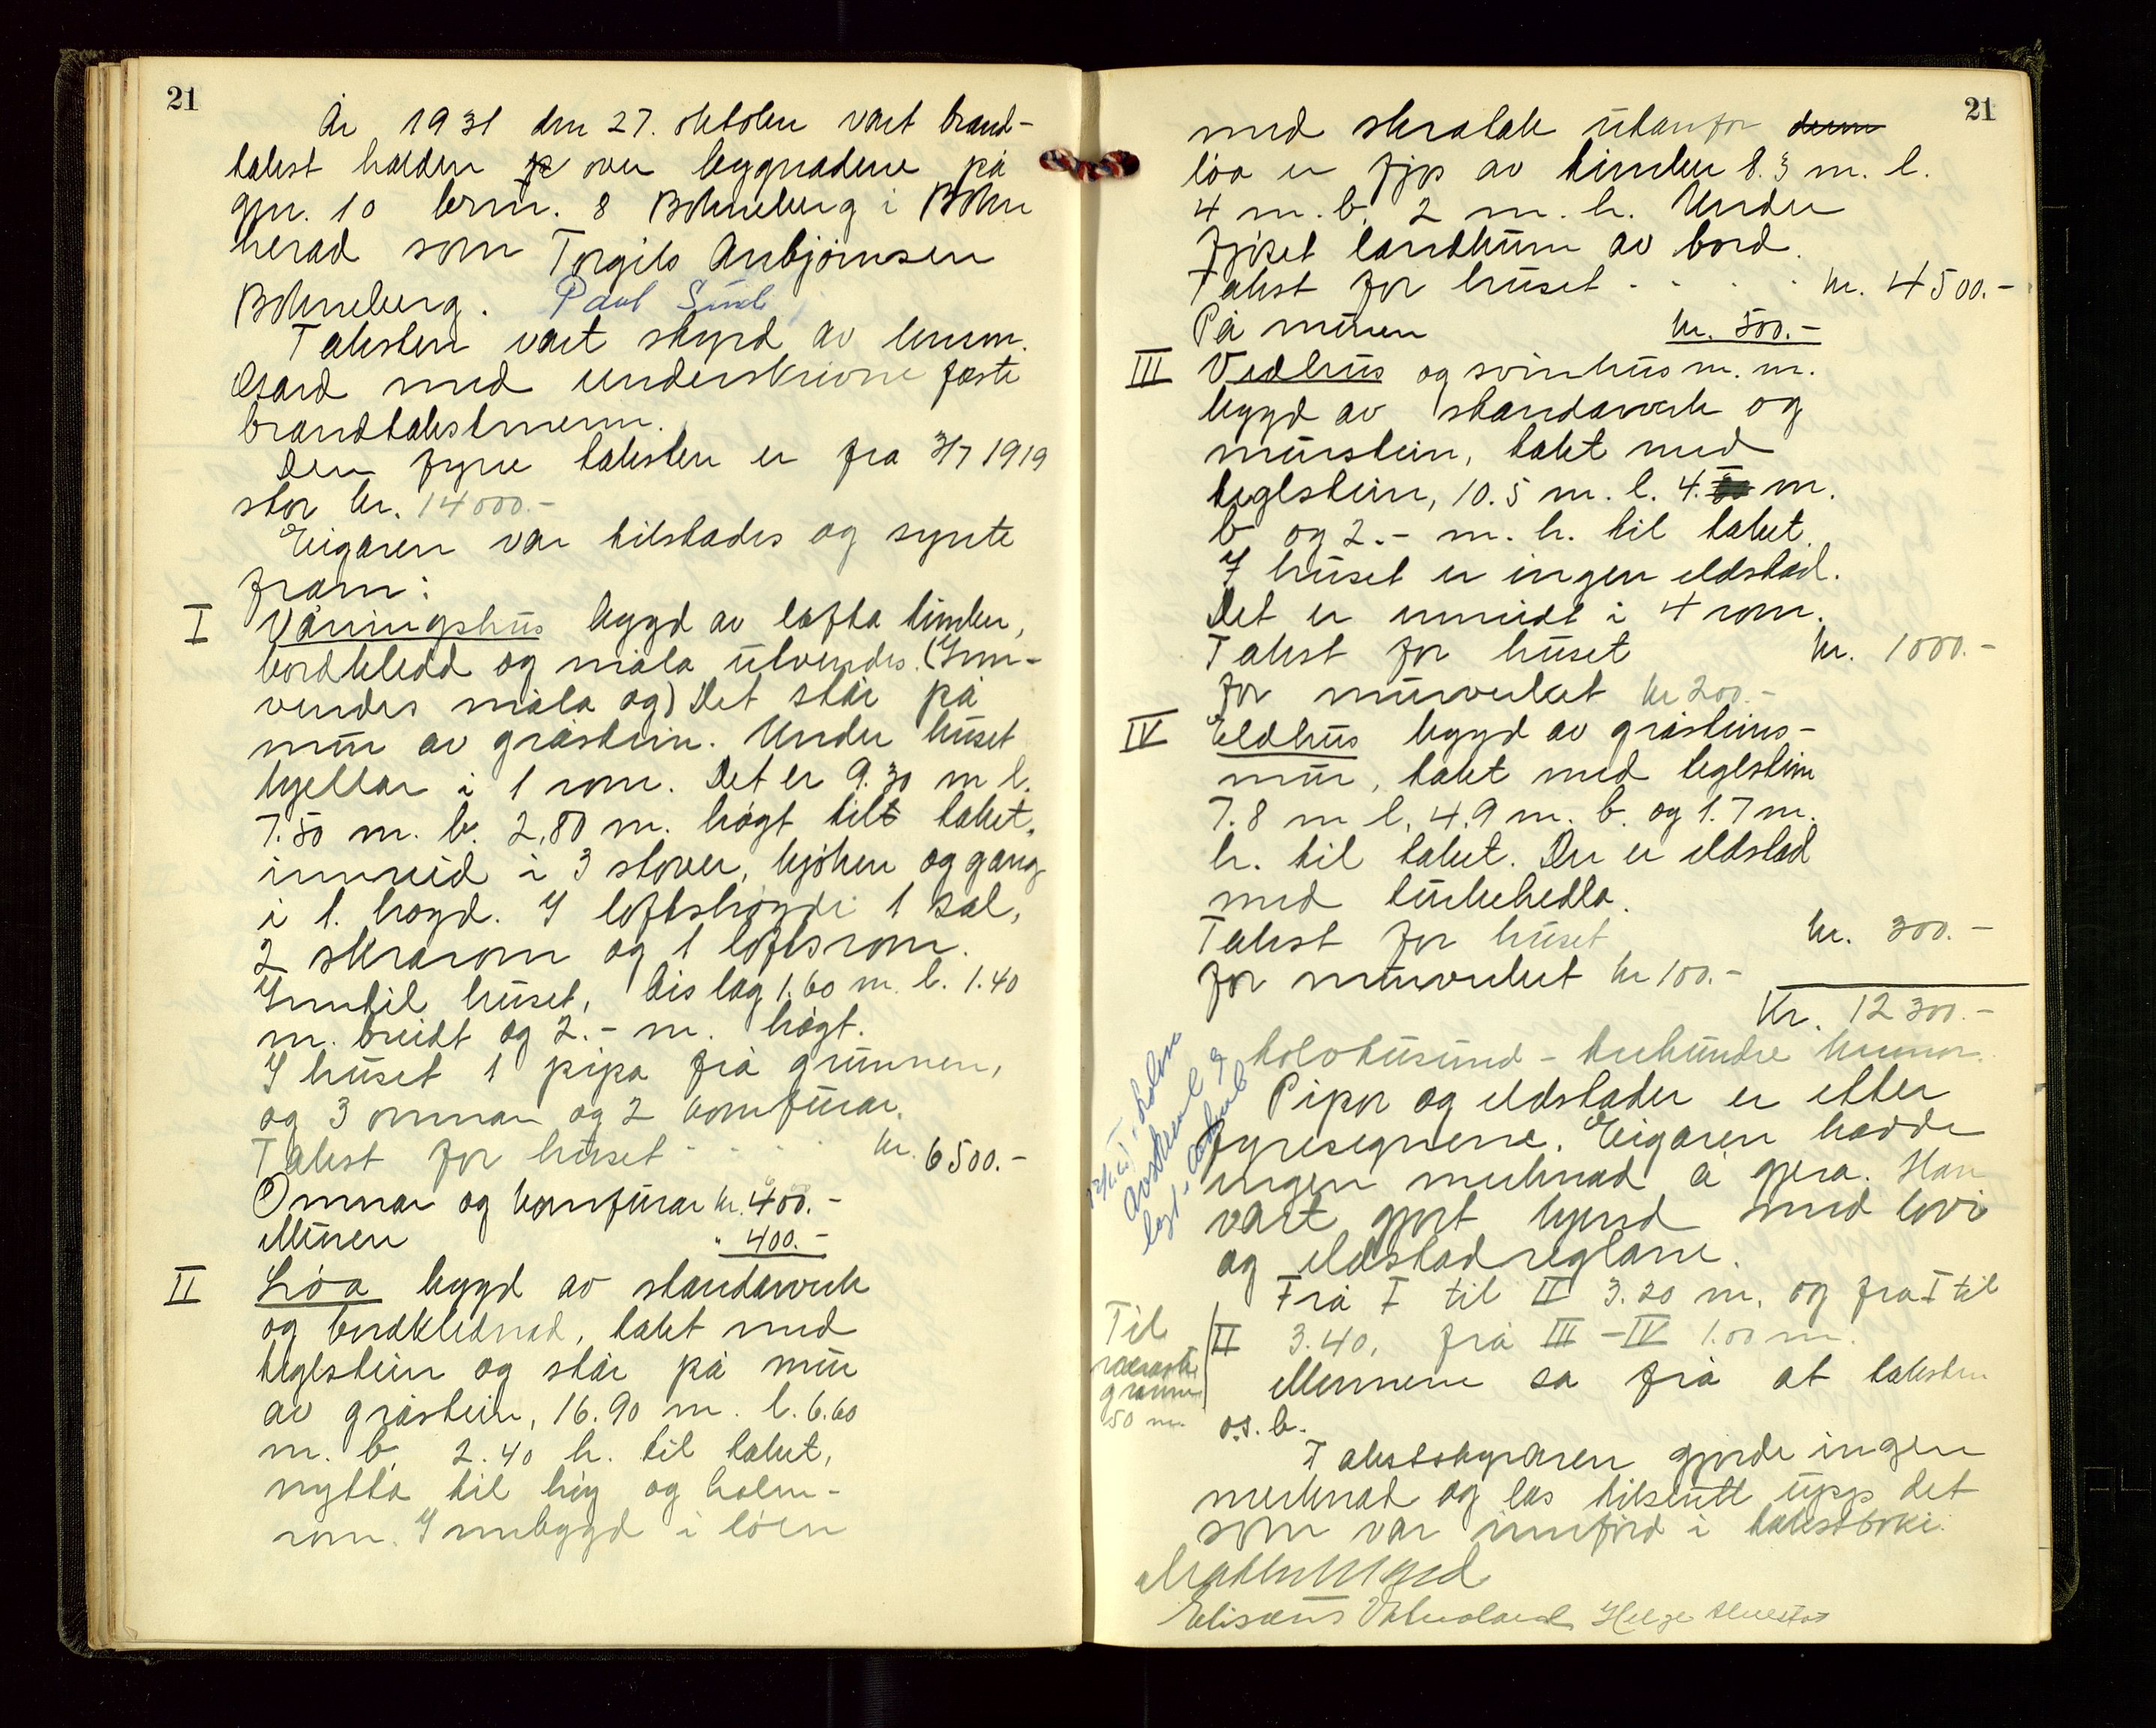 21
År 1931 den 27. oktober vart brand-
takst halden over bygnadene på
gnr. 10 brnr. 8 Bokneberg i Bokn
herad som Torgils Anbjørnsen
Bokneberg. Paul
Taksten vart styrd av lensm.
Gard med underskrivne faste
brandtakstmenn.
Den fyrre taksten er fra 3/7 1919
stor kr. 14000.-
Eigaren var tilstades og synte
fram:
I Våningshus bygd av lafta timber,
bordkledd og måla utvendes. (Inn-
vendes måla og) Det står på
mur av gråstein. Under huset
kjellar i 1 rom. Det er 9.30 m l.
7.50 m. b. 2,80 m. høgt tilt taket.
innreid i 3 stover, kjøken og gang
i 1. høgd. I loftshøgdi 1 sal,
2 skrarom og 1 loftsrom.
Inntil huset, bislag 1.60 m. l. 1.40
m. breidt og 2.- m. høgt.
I huset 1 pipa frå grunnen,
og 3 omnar og 2 komfurar.
Takst for huset - - - - kr. 6500.-
Omnar og komfurar kr. 400.-
Muren " 400.-
II Löa bygd av standarverk
og bordklednad, takt med
teglstein og står på mur
av gråstein, 16.90 m. l. 6.60
m. b. 2.40 h. til taket,
nytta til høy og halm-
rom. Innbygd i löen
21
med skratak utanfor denn
löa er fjos av timber 8.3 m. l.
4 m. b. 2 m. h. Under
fjöset landkum av bord.
Takst for huset - - - - kr. 4500.-
På muren kr. 500.-
III Vedhus og svinhus m. m.
bygd av standarverk og
murstein, takt med
teglstein, 10.5 m. l. 4. m.
b og 2.- m. h. til taket.
I huset er ingen eldstad.
Det er innreidt i 4 rom.
Takst for huset kr. 1000.-
for murverket kr 200.-
IV Eldhus bygd av gråsteins-
mur, takt med teglstein
7.8 m l, 4.9 m. b. og 1.7 m.
h. til taket. Der er eldstad
med turkehedla.
Takst for huset kr. 300.-
for murverket kr 100.-
Kr. 12300.-
tolvtusund - trehundre kronor.
Pipor og eldstader er etter
fyresegnene. Eigaren hadde
ingen merknad å gjera. Han
vart gjort kjend med lovi
og eldstadreglane.
Frå I til II 3.20 m. og fra I til
II 3.40, frå III - IV 1.00 m.
Til
næraste
granne
50 m.
Mennene sa frå at taksten
o.s.b.
Takststyraren gjorde ingen
merknad og las tilslutt upp det
som var innförd i takstboki.
Elisæus Helge